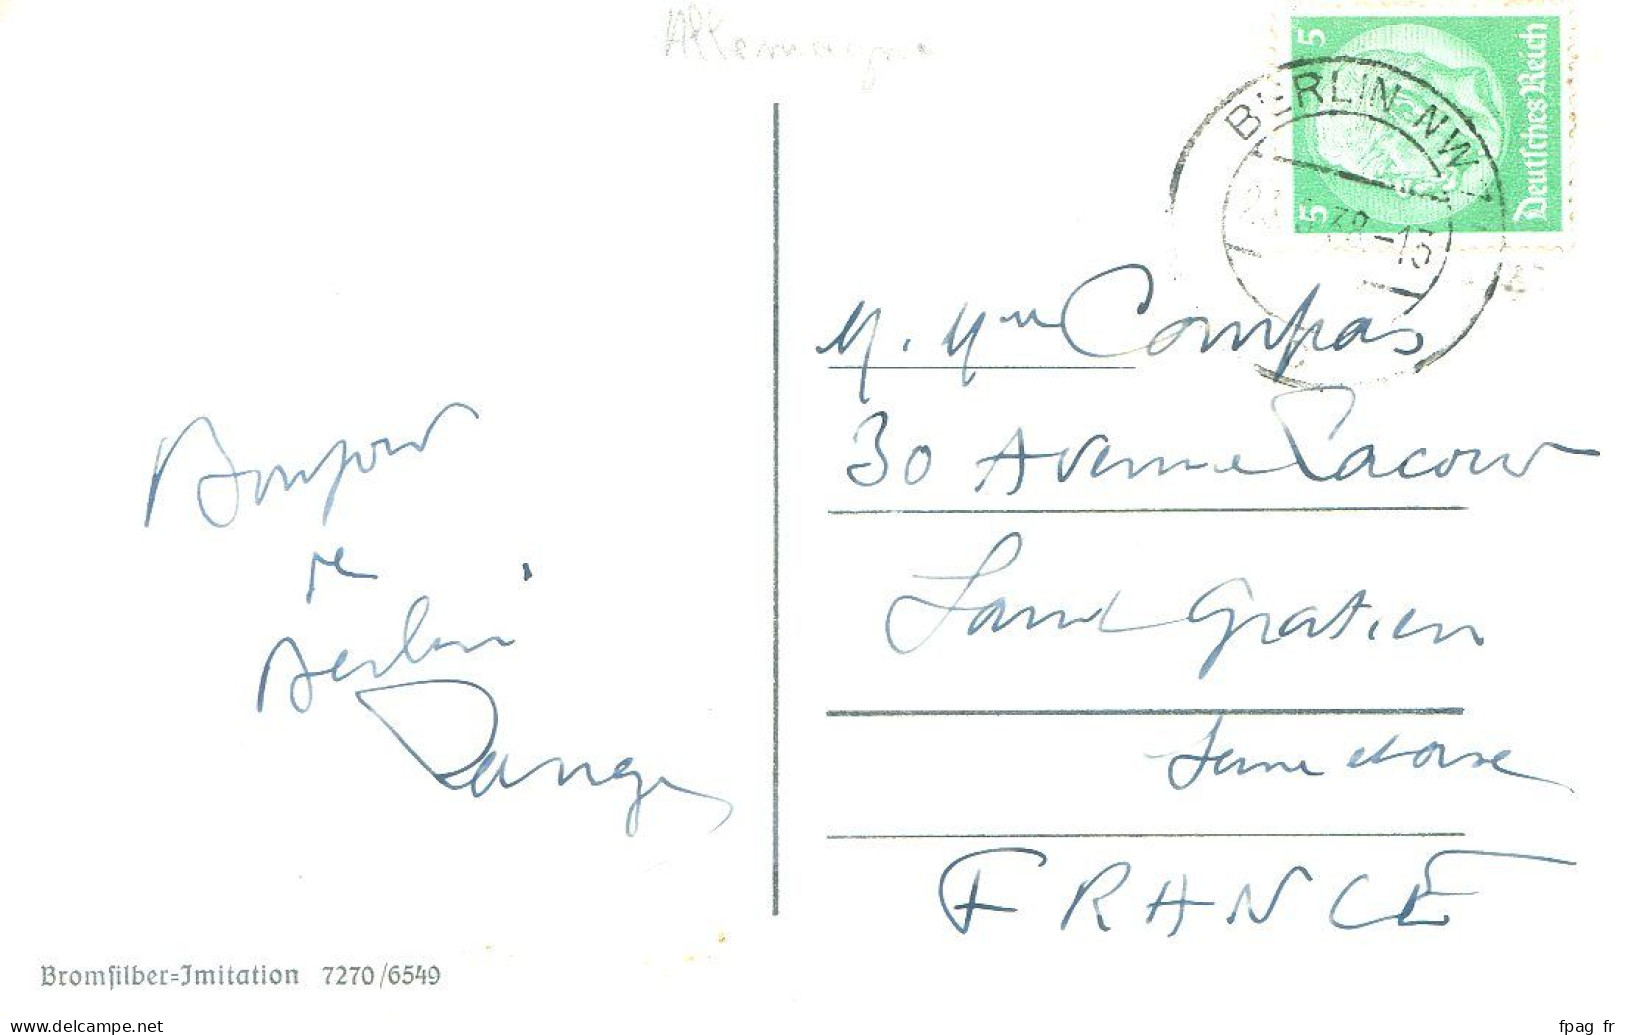 Allemagne
5
5
Deutſches Reich
BERLIN NW
38-13
M. Mme Compas
30 Avenue Lacour
Saint Gratien
Seine et Oise
FRANCE
Bonjour
de
Berlin
Bromſilber=Imitation 7270/6549
www.delcampe.net
fpag_fr